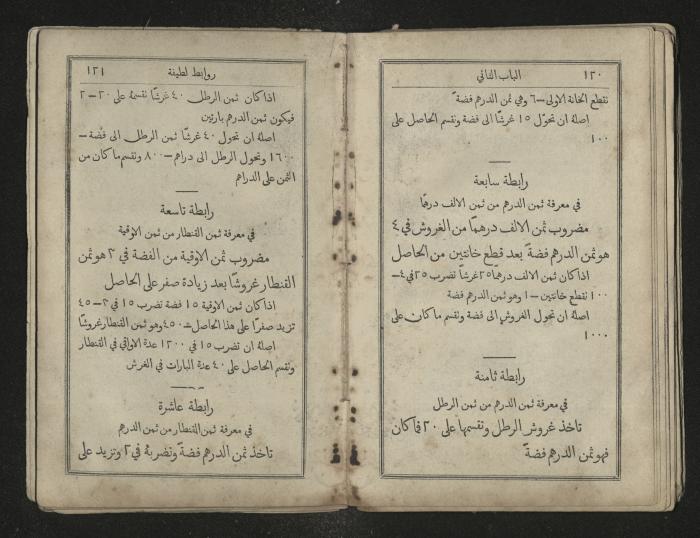 ١٢٠ الباب الثاني
نقطع الخانة الاولى—٦ وهي ثمن الدرهم فضةً
اصله ان تحوّل ١٥ غرشًا الى فضة ونقسم الحاصل على
١٠٠
رابطة سابعة
في معرفة ثمن الدرهم من ثمن الالف درهمًا
مضروب ثمن الالف درهمًا من الغروش في ٤
هو ثمن الدرهم فضةً بعد قطع خانتين من الحاصل
اذا كان ثمن الالف درهمًا ٢٥ غرشًا نضرب ٢٥ في ٤—
١٠٠ نقطع خانتين—١ وهو ثمن الدرهم فضة
اصله ان تحول الغروش الى فضة ونقسم ما كان على
١٠٠٠
رابطة ثامنة
في معرفة ثمن الدرهم من ثمن الرطل
تاخذ غروش الرطل وتقسمها على ٢٠ فما كان
فهو ثمن الدرهم فضةً
روابط لطيفة ١٢١
اذا كان ثمن الرطل ٤٠ غرشًا نقسمه على ٢٠—٢
فيكون ثمن الدرهم بارتين
اصله ان تحول ٤٠ غرشًا ثمن الرطل الى فضة—
١٦٠٠ وتحول الرطل الى دراهم—٨٠٠ ونقسم ما كان من
الثمن على الدراهم
رابطة تاسعة
في معرفة ثمن القنطار من ثمن الاوقية
مضروب ثمن الاوقية من الفضة في ٣ هو ثمن
القنطار غروشًا بعد زيادة صفر على الحاصل
اذا كان ثمن الاوقية ١٥ فضة نضرب ١٥ في ٣—٤٥
تزيد صفرًا على هذا الحاصل—٤٥٠ وهو ثمن القنطار غروشًا
اصله ان نضرب ١٥ في ١٢٠٠ عدة الاواقي في القنطار
ونقسم الحاصل على ٤٠ عدة البارات في الغرش
رابطة عاشرة
في معرفة ثمن القنطار من ثمن الدرهم
تاخذ ثمن الدرهم فضةً وتضربهُ في ٢ وتزيد على